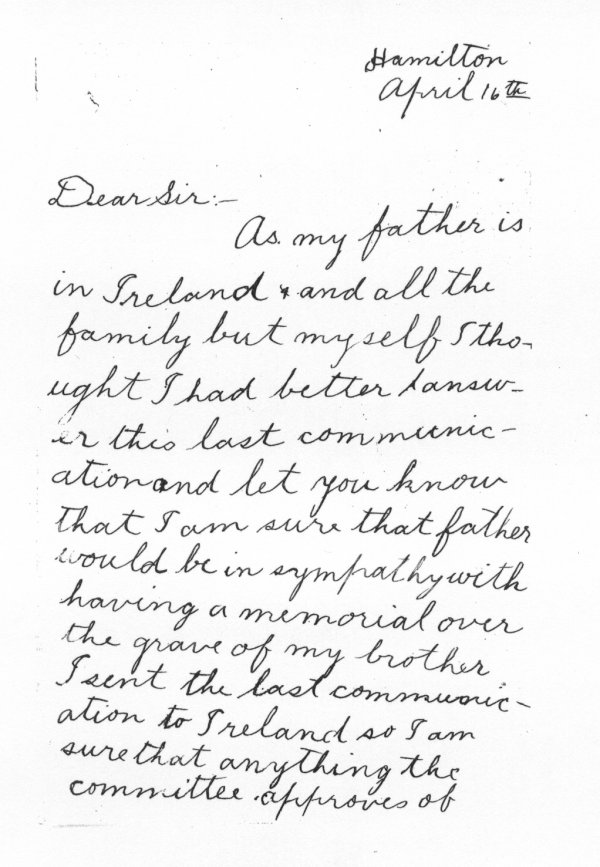 Hamilton
April 16th
Dear Sir:-
As my father is
in Ireland & and all the
family but myself I tho-
ught I had better answ-
er this last communic-
ation and let you know
that I am sure that father
would be in sympathy with
having a memorial over
the grave of my brother
I sent the last communic-
ation to Ireland so I am
sure that anything the
committee approves of